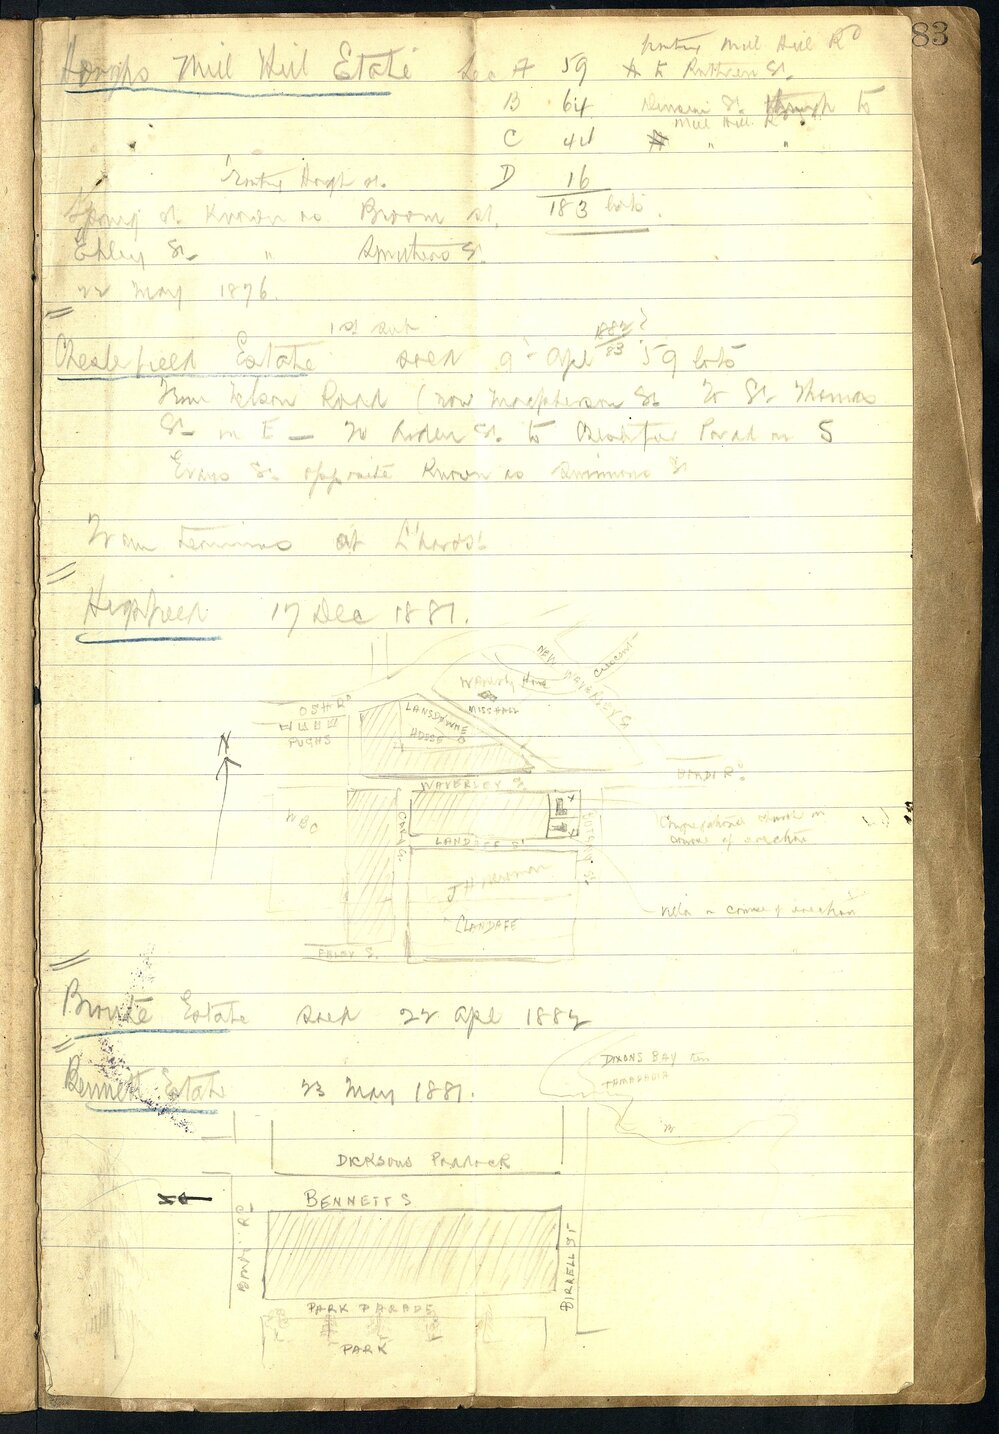 83
Houghs Mill Hill Estate Sec A 59 fronting Mill Hill Rd
to Ruthven St.
B 64 Denison St. through to
Mill Hill R
C 44 " "
D 16
fronting Hough St.
183 lots.
Spring St. Known as Broom St.
Ebley St. " Smithers St.
22 May 1876.
1st sub
Chesterfield Estate sold 9 Apl 1882/83? 59 lots
From Nelson Road (now Macpherson St to St Thomas
St on E — to Arden St. to Chesterfield Parade on S
Evans St. opposite Known as Simmons St
Tram terminus at
Highfield 17 Dec 1881.
NEW WAVERLEY Crescent
Waverly House
MISS HALL
OSH RD
LANSDOWNE
HOUSE
PUGHS
N
WAVERLEY St.
BONDI Rd.
WBC
Congregational Church in
course of erection
LANDAFF ST
J H Newman
Villa in course of erection
LLANDAFF
EBLEY S.
Bronte Estate sold 22 Apl 1882
Bennett Estate 23 May 1881.
DIXONS BAY
TAMARAMA
DICKSONS PADDOCK
BENNETT S
BONDI RD
BIRRELL ST
PARK PARADE
PARK